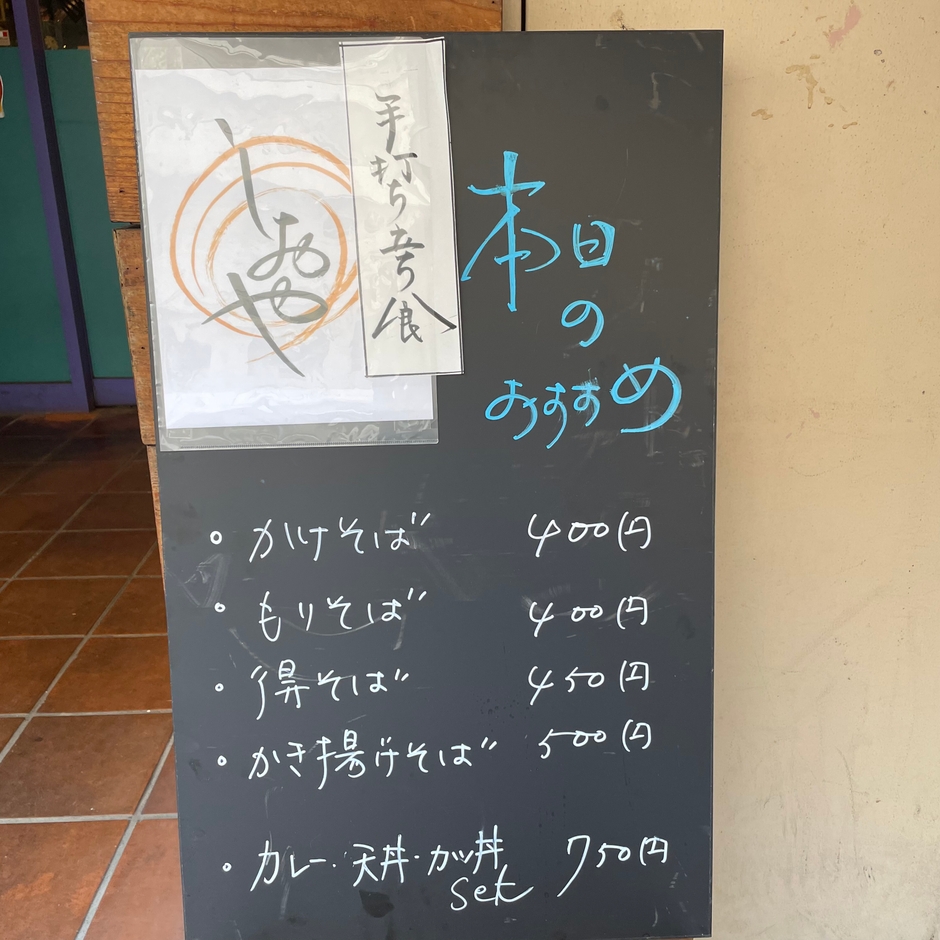 しおや
手打ち立ち食
本日
の
おすすめ
・かけそば 400円
・もりそば 400円
・得そば 450円
・かき揚げそば 500円
・カレー・天丼・カツ丼 750円
set